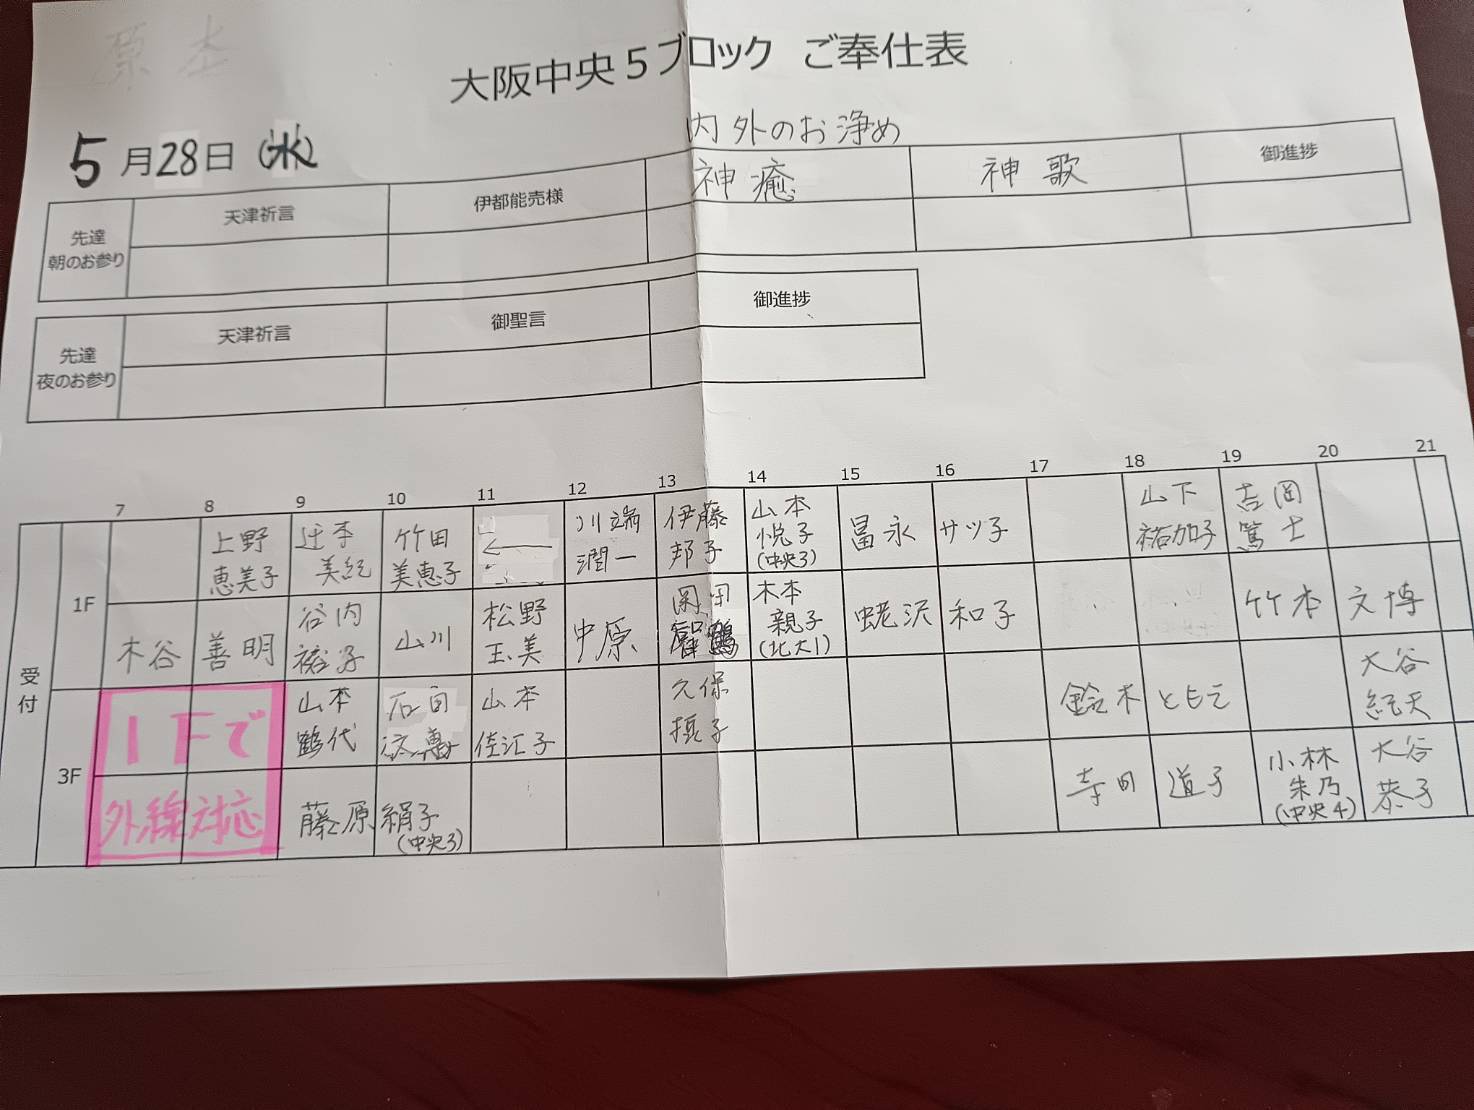 原本
大阪中央5ブロック ご奉仕表
5月28日(水)
内外のお浄め
先達
朝のお参り
天津祈言
伊都能売様
神癒
神歌
御進捗
先達
夜のお参り
天津祈言
御聖言
御進捗
7 8 9 10 11 12 13 14 15 16 17 18 19 20 21
受付
1F
上野
恵美子
辻本
美紀
竹田
美恵子
←
川端
潤一
伊藤
邦子
山本
悦子
(中央3)
冨永 サツ子
山下
祐加子
吉岡
篤士
木谷 善明
谷内
裕子
山川
松野
玉美
中原
木本
親子
(北大1)
蛯沢 和子
竹本 文博
3F
1Fで
外線対応
山本
鶴代
石自
山本
佳江子
久保
鈴木 ともえ
大谷
紀天
藤原 絹子
(中央3)
寺田 道子
小林
朱乃
(中央4)
大谷
恭子